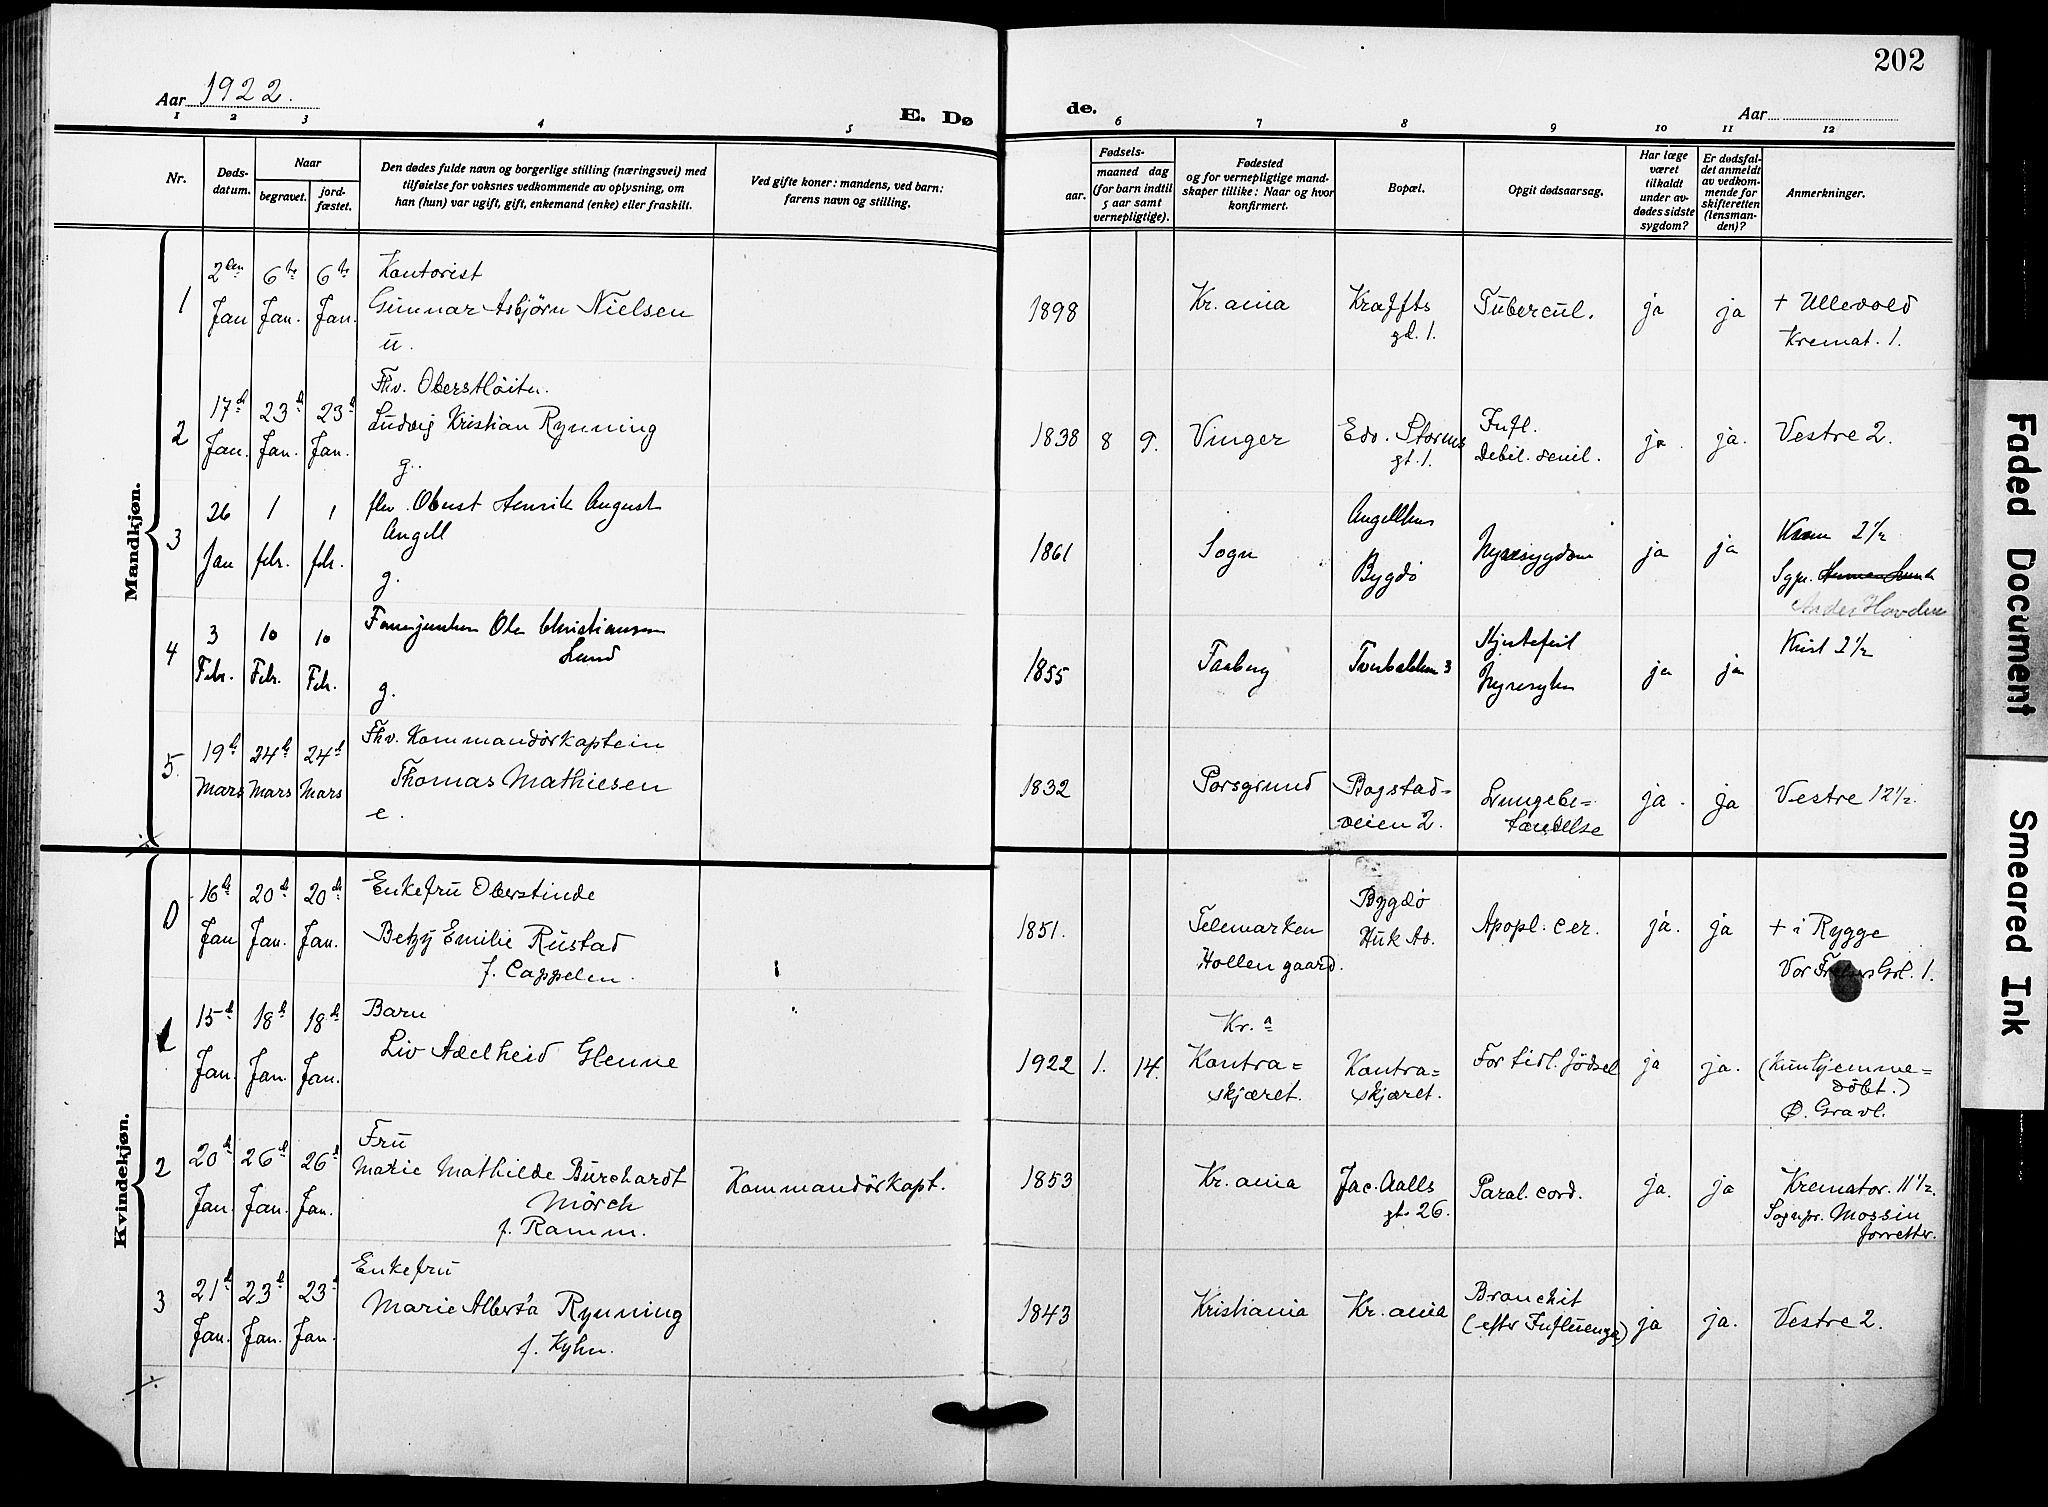 202
Aar 1922.
E. Dø
de.
Aar
1 2 3 4 5 6 7 8 9 10 11 12
Nr.
Døds-
datum.
Naar
begravet.
jord-
fæstet.
Den dødes fulde navn og borgerlige stilling (næringsvei) med
tilføielse for voksnes vedkommende av oplysning, om
han (hun) var ugift, gift, enkemand (enke) eller fraskilt.
Ved gifte koner: mandens, ved barn:
farens navn og stilling.
Fødsels-
aar.
maaned dag
(for barn indtil
5 aar samt
vernepligtige).
Fødested
og for vernepligtige mand-
skaper tillike: Naar og hvor
konfirmert.
Bopæl.
Opgit dødsaarsag.
Har læge
været
tilkaldt
under av-
dødes sidste
sygdom?
Er dødsfal-
det anmeldt
av vedkom-
mende for
skifteretten
(lensman-
den)?
Anmerkninger.
Mandkjøn.
1
2den
Jan
6te
Jan.
6te
Jan.
Kontorist
Gunnar Asbjørn Nielsen
u.
1898
Kr.ania
Kraffts
gd. 1.
Tubercul.
ja
ja
+ Ullevold
Kremat. 1.
2
17d
Jan.
23d
Jan.
23d
Jan.
Fhv. Oberstløitn.
Ludvig Kristian Rynning
g.
1838 8 9.
Vinger
Edv. Storms
gt. 1.
Infl.
Debil. senil.
ja
ja.
Vestre 2.
3
26
Jan
1
febr.
1
febr.
fhv. Oberst Henrik August
Angell
g.
1861
Sogn
Angellhus
Bygdø
Nyresygdom
ja
ja
Krem 2½
Sgpr.
Anders Hovden
4
3
Febr.
10
Febr.
10
Febr.
Fanejunker Ole Christiansen
Lund
g.
1855
Faaberg
Tverbakken 3
Hjertefeil
Nyresyke
ja
ja
Krist 2½
5.
19d
Mars
24d
Mars
24d
Mars
Fhv. Kommandørkaptein
Thomas Mathiesen
e.
1832
Porsgrund
Bogstad=
veien 2.
Lungebe=
tændelse
ja.
ja
Vestre 12½.
Kvindekjøn.
0
16de
Jan
20de
Jan.
20de
Jan.
Enkefru Oberstinde
Betzy Emilie Rustad
f. Cappelen.
1851.
Telemarken
Hollen gaard.
Bygdø
Huk Av.
Apopl. cer.
ja.
ja
+ i Rygge
Vor Frelsers Grl. 1.
1
15d
Jan.
18d
Jan.
18d
Jan.
Barn
Liv Adelheid Glenne
1922 1. 14.
Kr.a
Kontra=
skjæret.
Kontra=
skjæret.
For tidl. fødsel
ja
ja.
(Kun hjemme=
døbt.)
Ø. Gravl.
2
20d
Jan.
26d
Jan.
26d
Jan.
Fru
Marie Mathilde Burchardt
Mørch
f. Ramm.
Kommandørkapt.
1853
Kr.ania
Jac. Aalls
gt. 26.
Paral. cord.
ja.
ja
Kremator. 11½.
Sognpr. Mossin
forretter.
3
21d
Jan.
23d
Jan.
23d
Jan.
Enkefru
Marie Alberta Rynning
f. Kyhn.
1843
Kristiania
Kr.ania
Bronchit
(efter Influenza)
ja
ja.
Vestre 2.
Faded Document
Smeared Ink